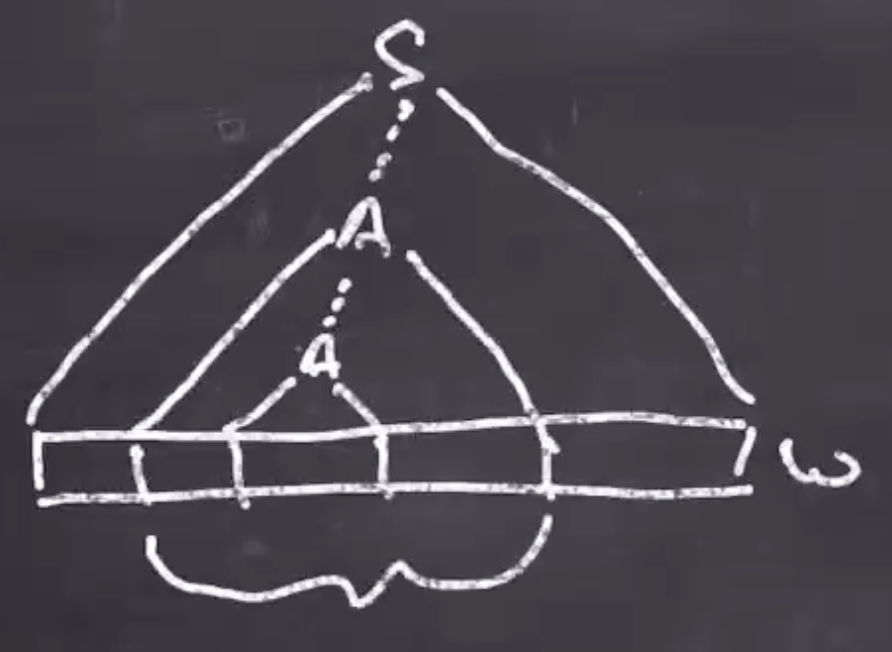 S
A
A
ω